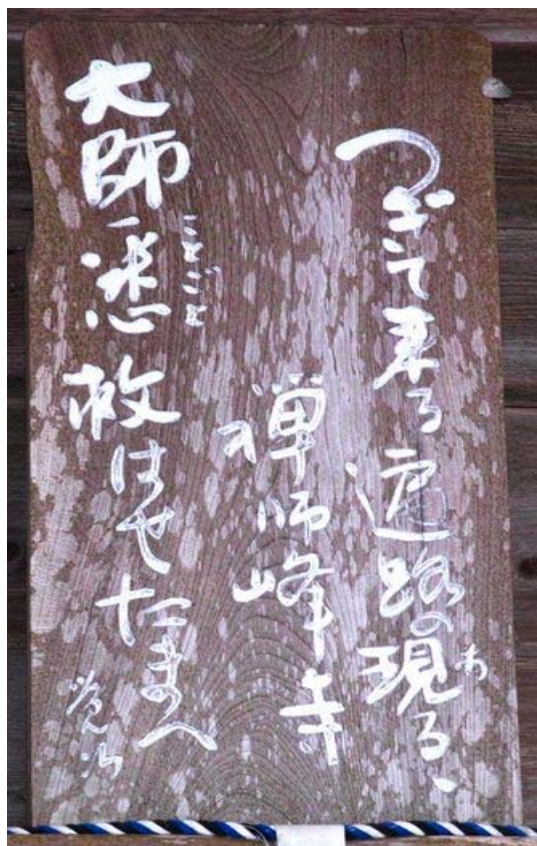 つぎて来る遍路の現るゝ
あ
禅師峰寺
大師悉救はせたまへ
ことごと